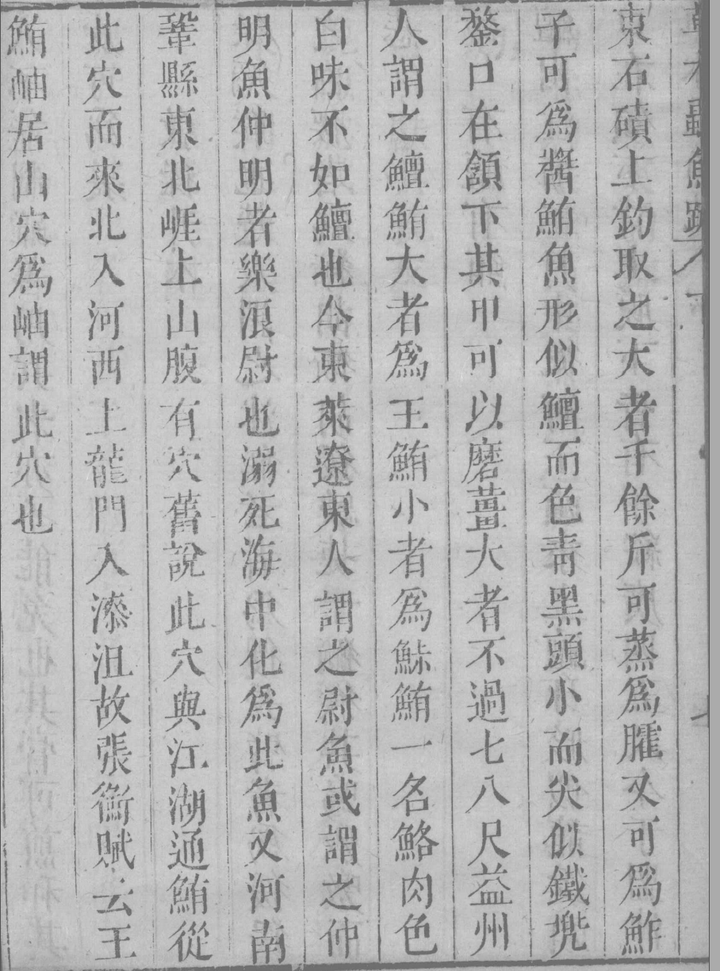 草木蟲魚疏 下
東石磧上釣取之大者千餘斤可蒸爲臛又可爲鮓
子可爲醬鮪魚形似鱣而色靑黑頭小而尖似鐵兠
鍪口在頷下其甲可以磨薑大者不過七八尺益州
人謂之鱣鮪大者爲王鮪小者爲鮛鮪一名鮥肉色
白味不如鱣也今東萊遼東人謂之尉魚或謂之仲
明魚仲明者樂浪尉也溺死海中化爲此魚又河南
鞏縣東北崕上山腹有穴舊說此穴與江湖通鮪從
此穴而來北入河西上龍門入漆沮故張衡賦云王
鮪岫居山穴爲岫謂此穴也